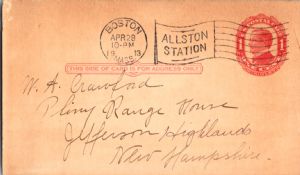 BOSTON
APR 28
10-PM
1913
MASS.
ALLSTON
STATION
1
1
THIS SIDE OF CARD IS FOR ADDRESS ONLY
W. A. Crawford
Pliny Range House
Jefferson Highlands
New Hampshire.